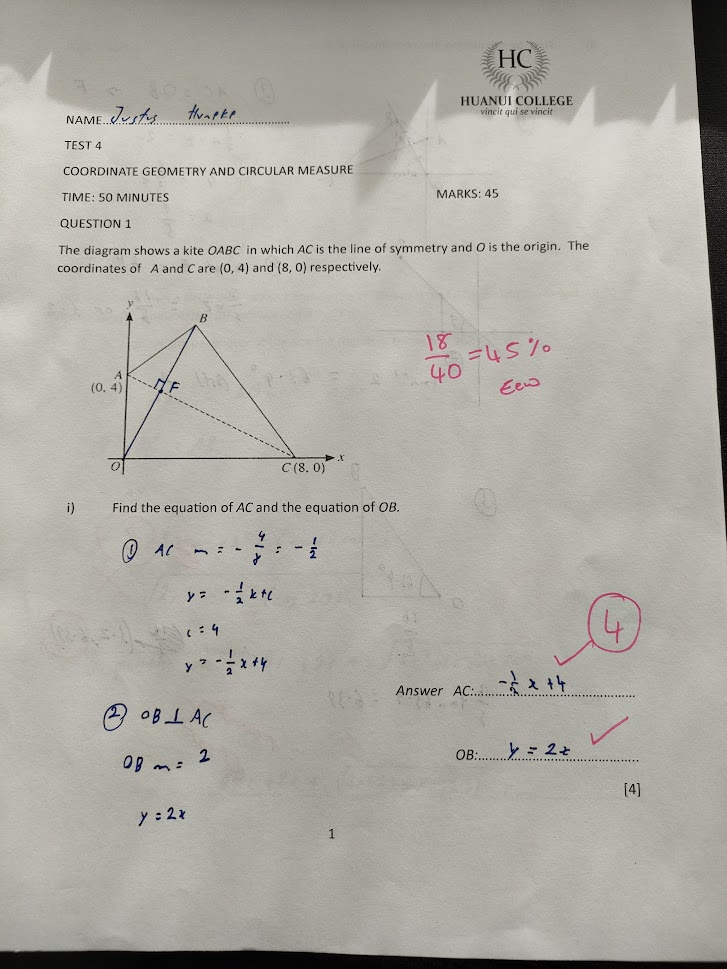 HC
HUANUI COLLEGE
vincit qui se vincit
NAME Justus
TEST 4
COORDINATE GEOMETRY AND CIRCULAR MEASURE
TIME: 50 MINUTES MARKS: 45
QUESTION 1
The diagram shows a kite OABC in which AC is the line of symmetry and O is the origin. The
coordinates of A and C are (0, 4) and (8, 0) respectively.
y
B
A
(0, 4)
F
O
C (8, 0)
x
18/40 = 45 %
Eew
i) Find the equation of AC and the equation of OB.
① AC m = - 4/8 = - 1/2
y = - 1/2 x + c
c = 4
y = - 1/2 x + 4
4
Answer AC: - 1/2 x + 4
② OB ⊥ AC
OB m = 2
OB: y = 2x
[4]
y = 2x
1